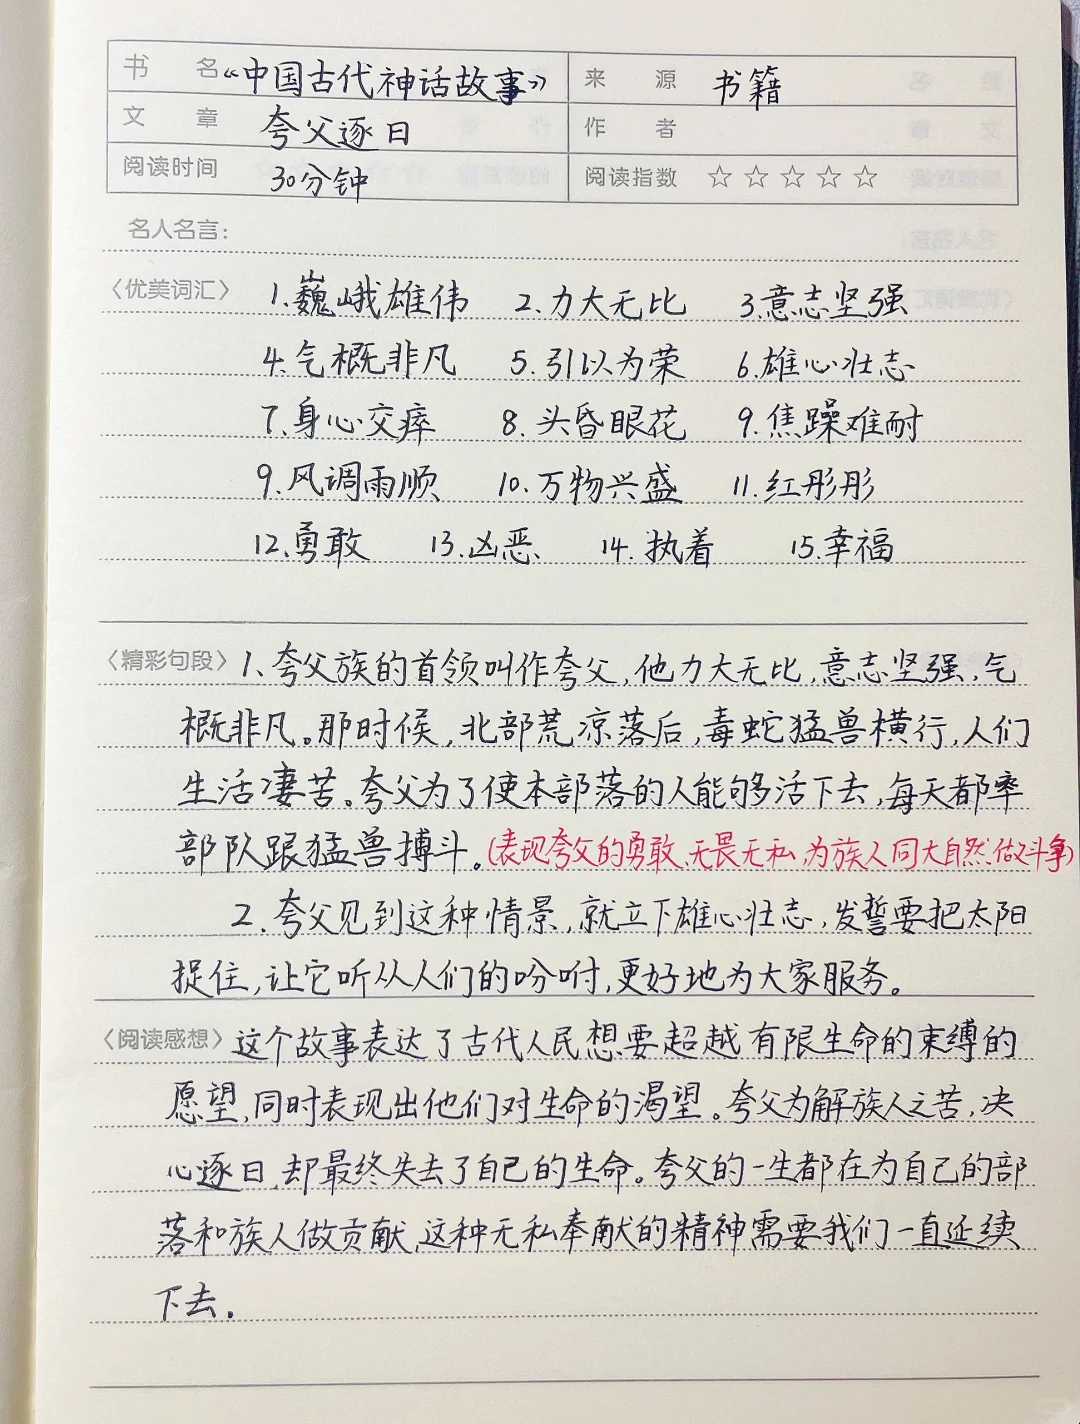 书 名 《中国古代神话故事》 来 源 书籍
文 章 夸父逐日 作 者
阅读时间 30分钟 阅读指数 ☆☆☆☆☆
名人名言：
〈优美词汇〉 1.巍峨雄伟 2.力大无比 3.意志坚强
4.气概非凡 5.引以为荣 6.雄心壮志
7.身心交瘁 8.头昏眼花 9.焦躁难耐
9.风调雨顺 10.万物兴盛 11.红彤彤
12.勇敢 13.凶恶 14.执着 15.幸福
〈精彩句段〉 1、夸父族的首领叫作夸父，他力大无比，意志坚强，气
概非凡。那时候，北部荒凉落后，毒蛇猛兽横行，人们
生活凄苦。夸父为了使本部落的人能够活下去，每天都率
部队跟猛兽搏斗。（表现夸父的勇敢、无畏无私，为族人同大自然做斗争）
2.夸父见到这种情景，就立下雄心壮志，发誓要把太阳
捉住，让它听从人们的吩咐，更好地为大家服务。
〈阅读感想〉 这个故事表达了古代人民想要超越有限生命的束缚的
愿望，同时表现出他们对生命的渴望。夸父为解族人之苦，决
心逐日，却最终失去了自己的生命。夸父的一生都在为自己的部
落和族人做贡献，这种无私奉献的精神需要我们一直延续
下去。